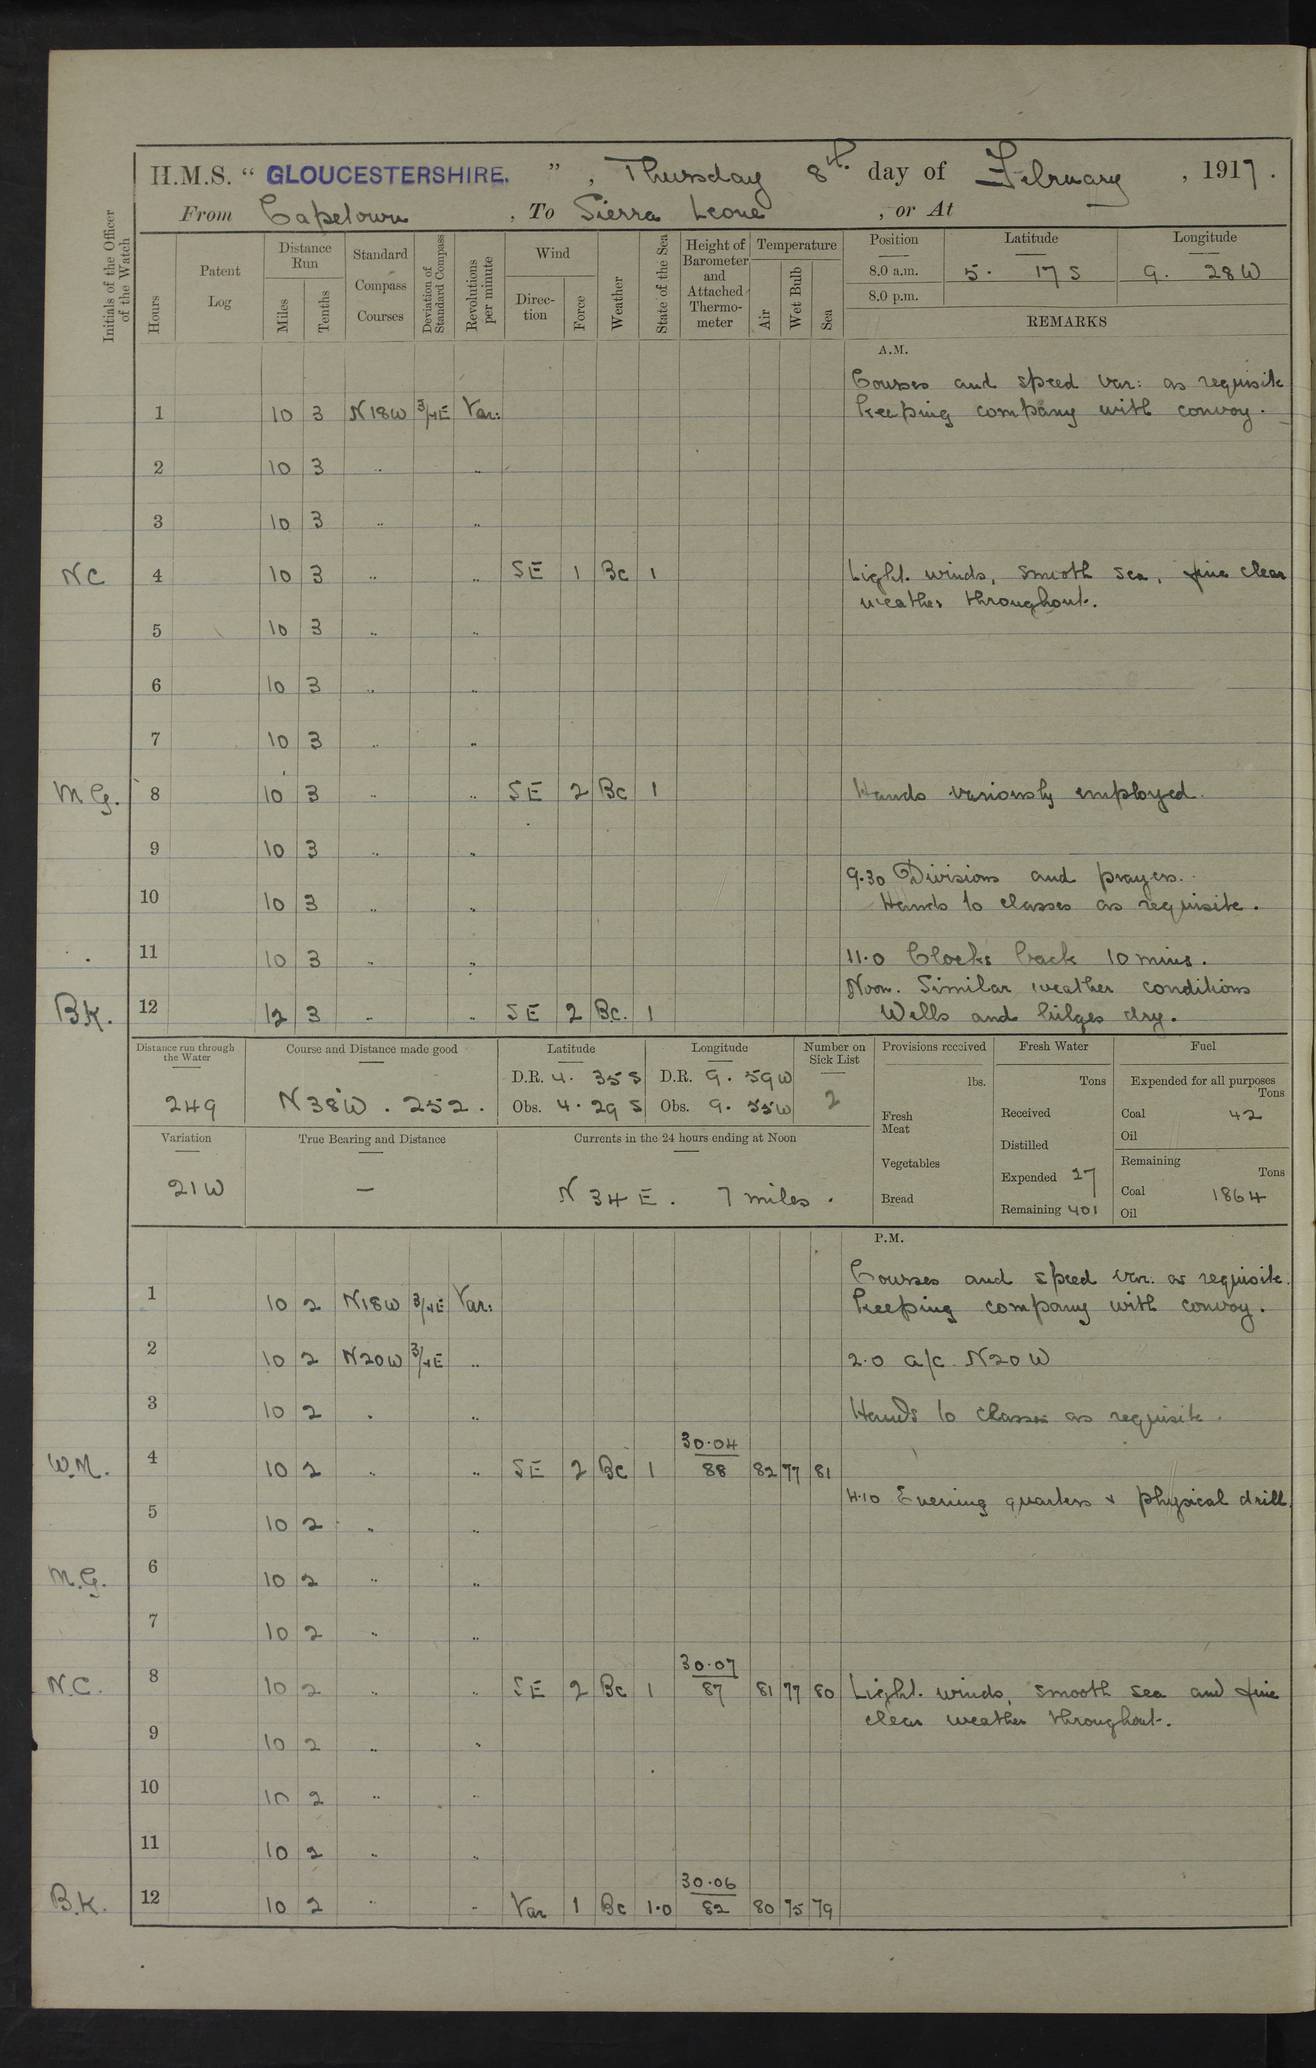 H.M.S. “ GLOUCESTERSHIRE. ” , Thursday 8th. day of February , 1917 .
From Capetown , To Sierra Leone , or At
Initials of the Officer of the Watch
Hours
Patent Log
Distance Run
Miles
Tenths
Standard Compass Courses
Deviation of Standard Compass
Revolutions per minute
Wind
Direction
Force
Weather
State of the Sea
Height of Barometer and Attached Thermometer
Temperature
Air
Wet Bulb
Sea
Position Latitude Longitude
8.0 a.m. 5. 17 S 9. 28 W
8.0 p.m.
REMARKS
A.M.
Courses and speed var: as requisite
1 10 3 N18W 3/4E Var: keeping company with convoy.
2 10 3 .. ..
3 10 3 .. ..
NC 4 10 3 .. .. SE 1 Bc 1 Light winds, smooth sea, fine clear
weather throughout.
5 10 3 .. ..
6 10 3 .. ..
7 10 3 .. ..
M G. 8 10 3 .. .. SE 2 Bc 1 Hands variously employed.
9 10 3 .. ..
9.30 Divisions and prayers.
10 10 3 .. .. Hands to classes as requisite.
11 10 3 .. .. 11.0 Clocks back 10 mins.
Noon. Similar weather conditions
B.K. 12 12 3 .. .. SE 2 Bc. 1 Wells and bilges dry.
Distance run through the Water
249
Course and Distance made good
N38W . 252 .
Latitude
D.R. 4. 35 S
Obs. 4. 29 S
Longitude
D.R. 9. 59 W
Obs. 9. 55 W
Number on Sick List
2
Provisions received
lbs.
Fresh Meat
Vegetables
Bread
Fresh Water
Tons
Received
Distilled
Expended 27
Remaining 401
Fuel
Expended for all purposes
Tons
Coal 42
Oil
Remaining
Tons
Coal 1864
Oil
Variation
21W
True Bearing and Distance
—
Currents in the 24 hours ending at Noon
N 34 E . 7 miles .
P.M.
Courses and speed var: as requisite.
1 10 2 N18W 3/4E Var: keeping company with convoy.
2 10 2 N20W 3/4E .. 2.0 a/c N20W
3 10 2 .. .. Hands to classes as requisite.
30.04
W.M. 4 10 2 .. .. SE 2 Bc 1 88 82 77 81
4.10 Evening quarters & physical drill.
5 10 2 .. ..
M.G. 6 10 2 .. ..
7 10 2 .. ..
30.07
N.C. 8 10 2 .. .. SE 2 Bc 1 87 81 77 80 Light winds, smooth sea and fine
clear weather throughout.
9 10 2 .. ..
10 10 2 .. ..
11 10 2 .. ..
30.06
B.K. 12 10 2 .. .. Var 1 Bc 1.0 82 80 75 79